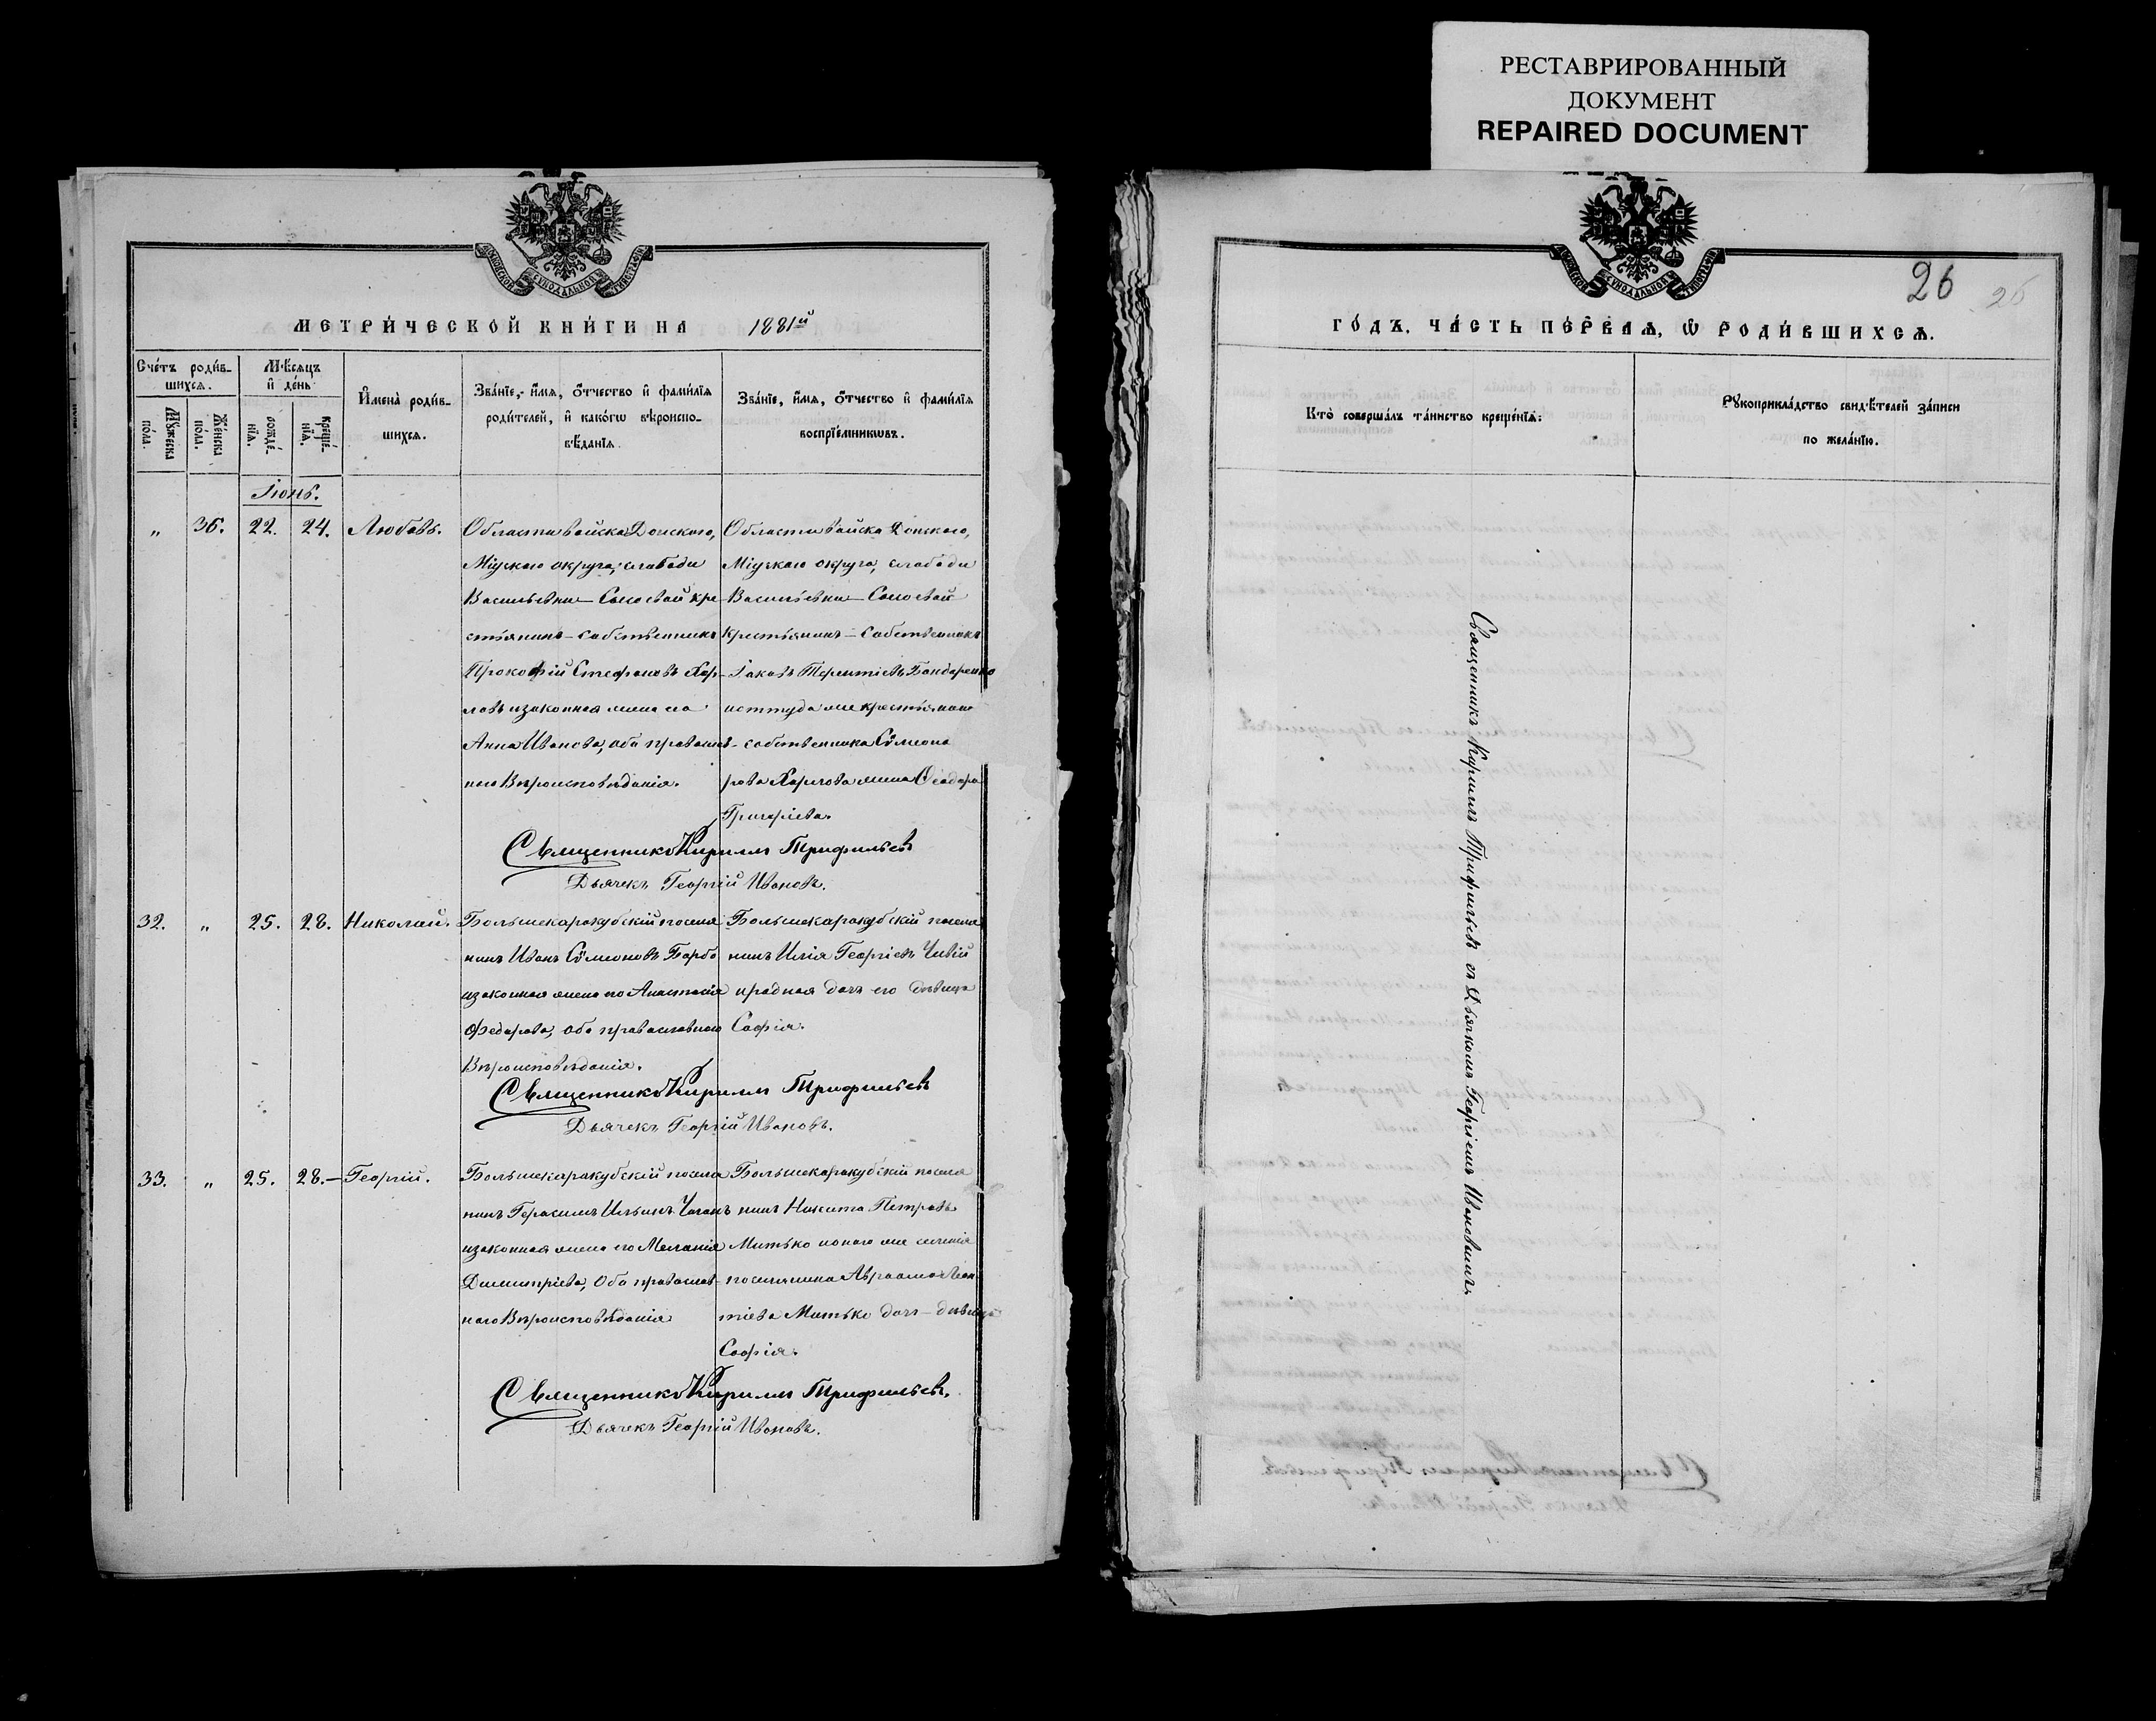 РЕСТАВРИРОВАННЫЙ
ДОКУМЕНТ
REPAIRED DOCUMENT
МЕТРИ́ЧЕСКОЙ КНИ́ГИ НА 1881й
Сче́тъ роди́вшихсѧ.
Мꙋ́жеска пола.
Же́нска пола.
Мѣ́сѧцъ и҆ де́нь
рожде́нїѧ.
креще́нїѧ.
И҆мена̀ роди́вшихсѧ.
Зва́нїе, и҆́мѧ, ѻ҆́тчество и҆ фами́лїѧ
роди́телей, и҆ како́гѡ вѣроиспо-
вѣ́данїѧ.
Зва́нїе, и҆́мѧ, ѻ҆́тчество и҆ фами́лїѧ
воспрїе́мникѡвъ.
Іюнь.
" 36. 22. 24. Любовь.
Области войска Донскаго,
Міускаго округа, слободи
Васильевки – кре
стьянинъ – собственникъ
Прокофій Стефановъ
изаконная жена его
Анна Иванова, оба православ-
наго Вѣроисповѣданія.
Области войска Донскаго,
Міускаго округа, слободи
Васильевки –
крестьянинъ – собственникъ
Іаковъ Терентіевъ Бондаренко
крестьянина
– собственника
жена Ѳеодора
Григоріева.
Священникъ Кириллъ Трифильевъ
Дьячекъ Георгій Ивановъ.
32. " 25. 28. Николай.
Большекаракубскій поселя
нинъ Иванъ Сѵмеоновъ Барбо
изаконная жена его Анастасія
Федорова, оба православнаго
Вѣроисповѣданія.
Большекаракубскій поселя
нинъ Илія Георгіевъ
иродная дочь его дѣвица
Софія.
Священникъ Кириллъ Трифильевъ
Дьячекъ Георгій Ивановъ.
33. " 25. 28. – Георгій.
Большекаракубскій поселя
нинъ Герасимъ Ильинъ
изаконная жена его Меланія
Димитріева, Оба православ-
наго Вѣроисповѣданія
Большекаракубскій поселя
нинъ Никита Петровъ
Митько
поселянина Авраама Леон
тіева Митько дочь – дѣвица
Софія.
Священникъ Кириллъ Трифильевъ.
Дьячекъ Георгій Ивановъ.
26 26
ГО́ДЪ. ЧА́СТЬ ПЕ́РВАѦ, Ѡ҆ РОДИ́ВШИХСѦ.
Кто̀ соверша́лъ та́инство креще́нїѧ:
Рꙋкоприкла́дство свидѣ́телей за́писи
по жела́нїю.
Священникъ Кириллъ Трифильевъ съ Дьячкомъ Георгіемъ Ивановымъ.